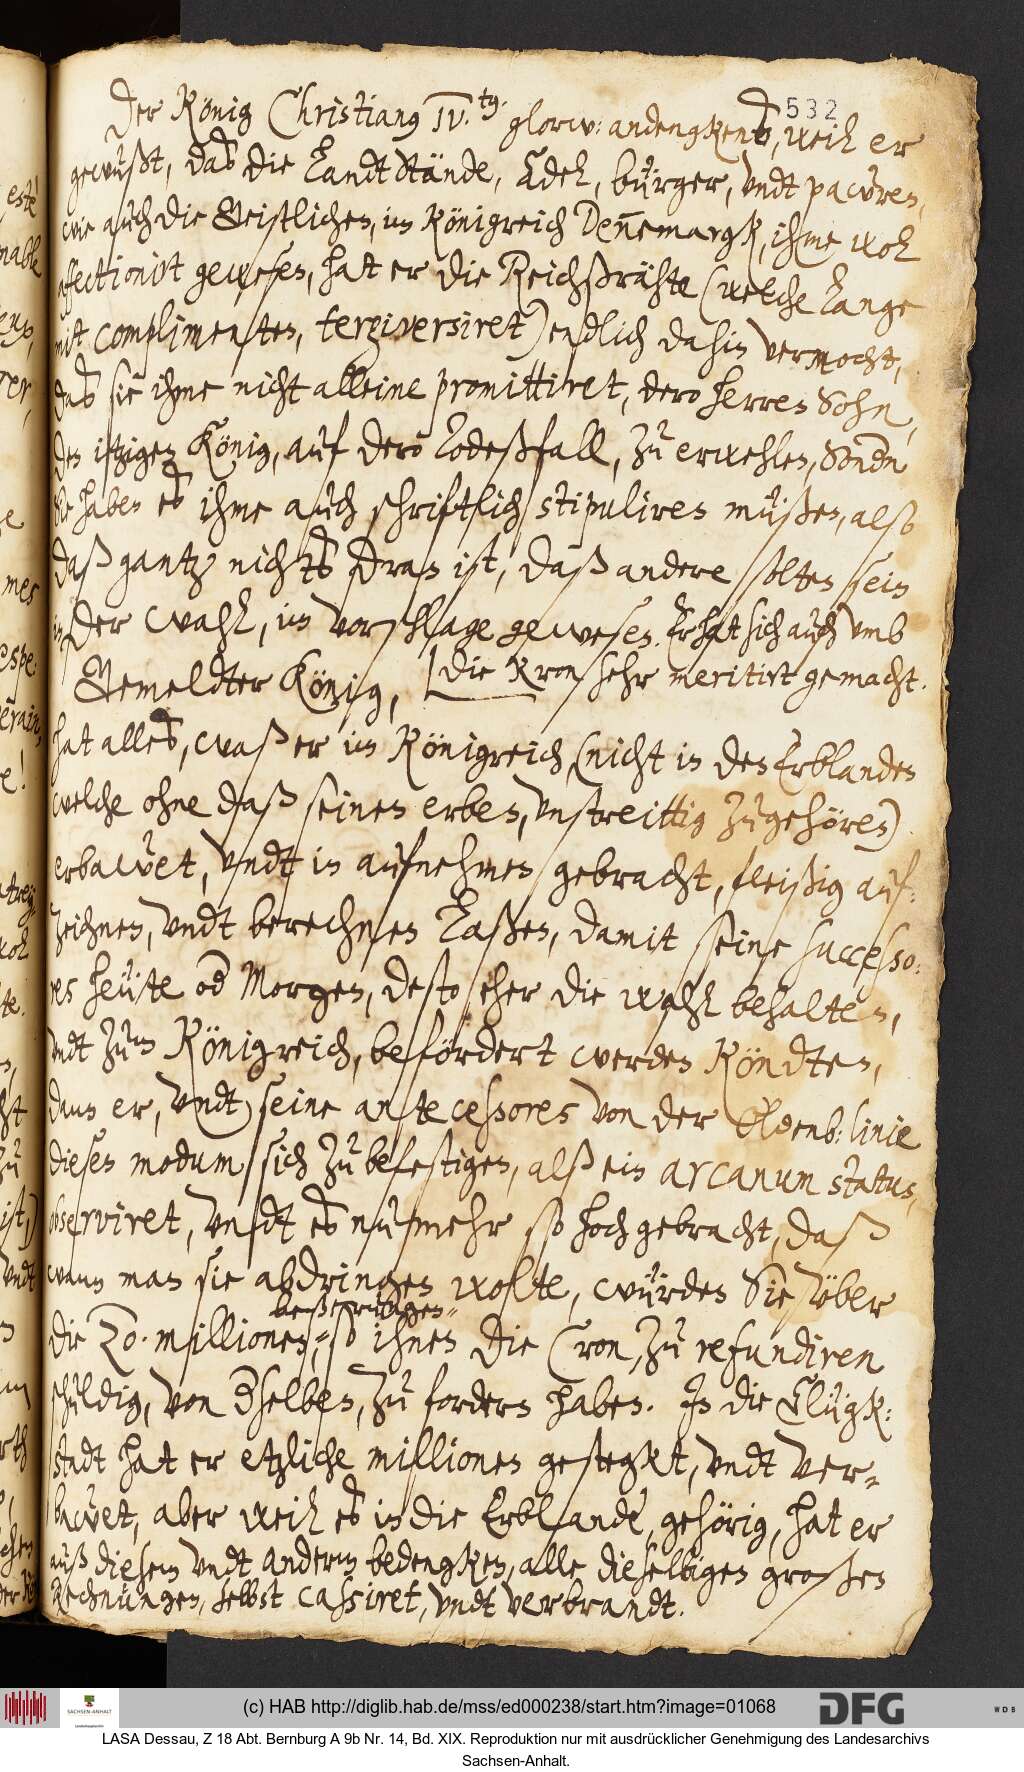 532
Der König Christianus IV.tg. glorw: andengkend, weil er
gewußt, daß die Landt Stände, Adel, bürger, undt pawren,
wie auch die Geistlichen, im Königreich Dennemargk, ihme wol
affectionirt gewesen, hat er die Reichßrähte (welche Lange
mit complimenten, tergiversiret) endlich dahin vermocht,
daß sie ihme nicht alleine promittiret, dero herren Sohn,
den itzigen König, auf dero Todeßfall, zu erwehlen, Sondn
Sie haben es ihme auch schriftlich stipuliren müßen, also
daß gantz nichts dran ist, daß andere solten sein
in der wahl, im vorschlage gewesen. Er hat sich auch umb
die Kron sehr meritirt gemacht.
Gemeldter König,
hat alles, waß er im Königreich, (nicht in den Erblanden
welche ohne daß seinen erben, unstreittig zugehören)
erbawet, undt in aufnehmen gebracht, fleißig auf:
zeichnen, undt berechnen Laßen, damit seine successo:
res heüte od Morgen, desto eher die wahl behalten,
undt zum Königreich, befördert werden Köndten,
dann er, undt seine antecessores von der Oldenb: linie
diesen modum sich zu befestigen, alß ein arcanum status,
observiret, undt es nunmehr so hoch gebracht, daß
wann man sie abdringen wolte, würden Sie über
beßerungen
die 20. millionen, so ihnen die Cron, zu refundiren
schuldig, von dselben, zu fordern haben. In die Glügk:
stadt hat er etzliche millionen gestegkt, undt ver-
bawet, aber weil es in die Erblande, gehörig, hat er
auß diesem undt anderm bedengken, alle dieselbigen großen
Rechnungen, selbst cassiret, undt verbrandt.
(c) HAB http://diglib.hab.de/mss/ed000238/start.htm?image=01068
SACHSEN-ANHALT
DFG
WDB
LASA Dessau, Z 18 Abt. Bernburg A 9b Nr. 14, Bd. XIX. Reproduktion nur mit ausdrücklicher Genehmigung des Landesarchivs
Sachsen-Anhalt.